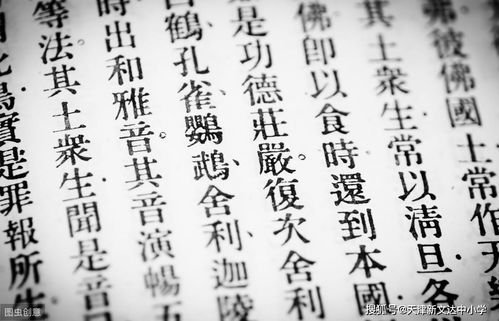 弗彼佛國土常作天
其土衆生常以淸旦各
佛卽以食時還到本國
是功德莊嚴。復次舍利
白鶴、孔雀、鸚鵡、舍利、迦陵
時出和雅音。其音演暢五
等法其土衆生聞是音
鳥實是罪報所生
图虫创意
搜狐号@天津新文达中小学